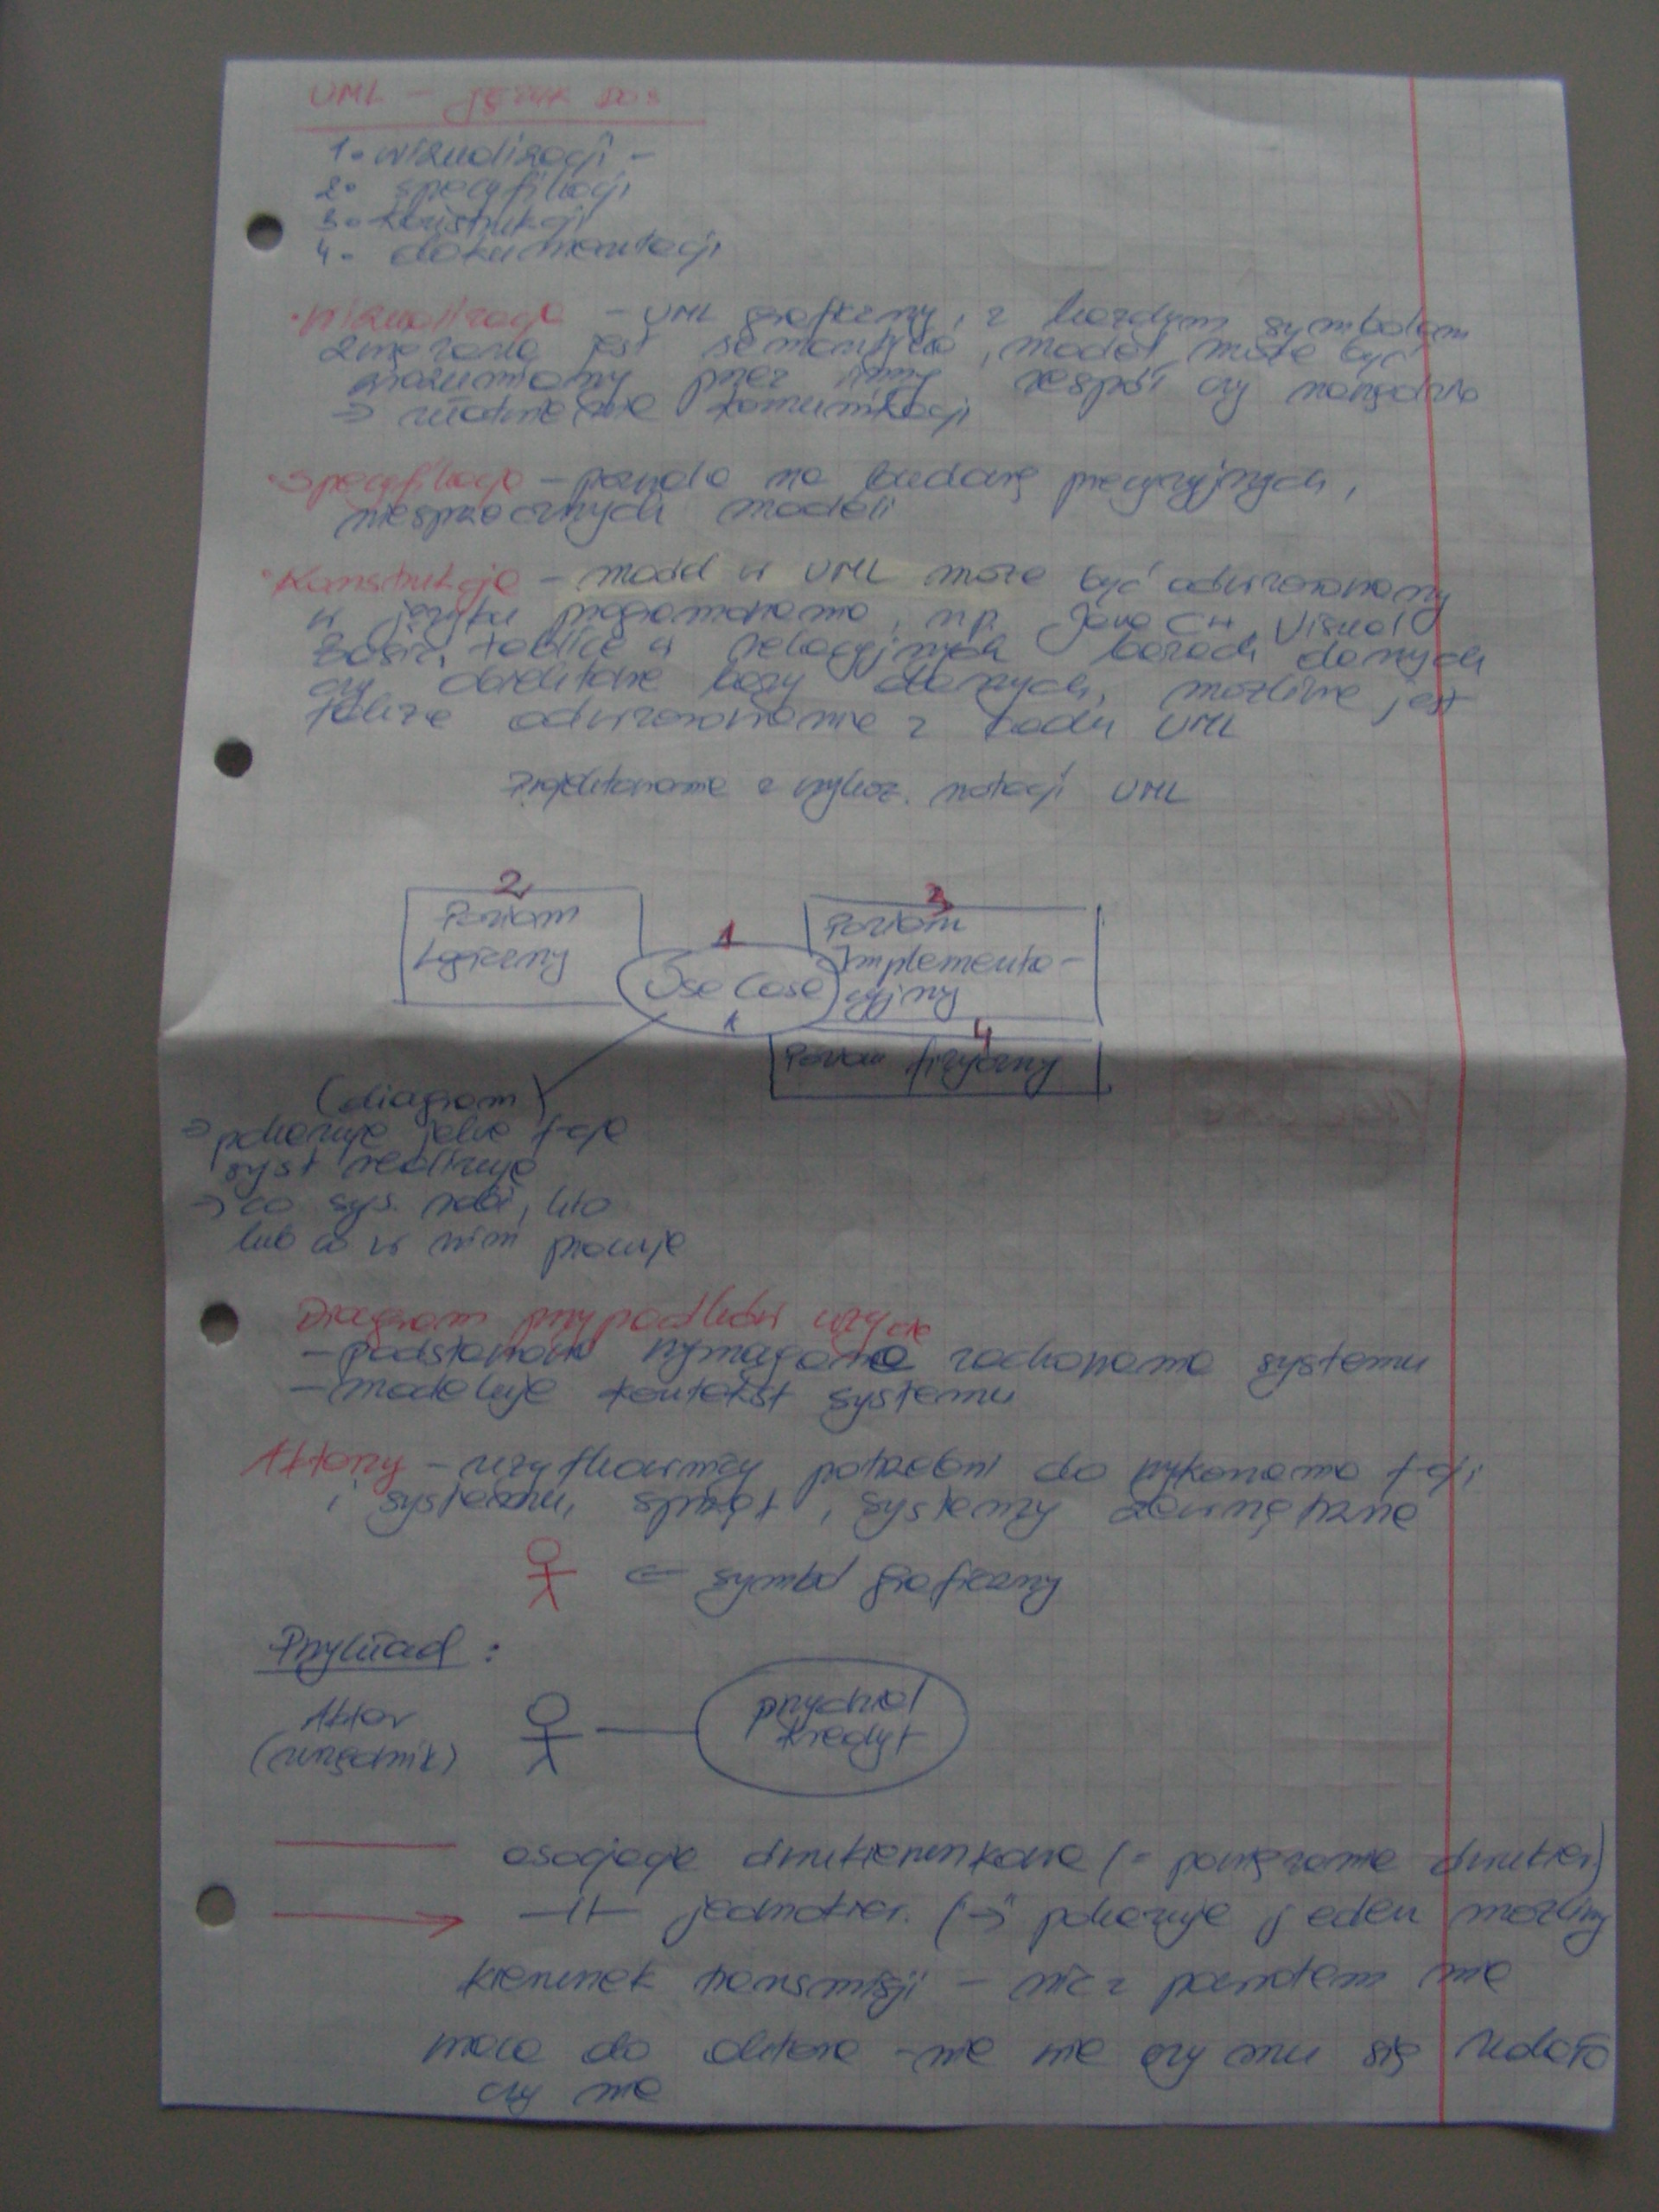 UML – język do:
1. wizualizacji –
2. specyfikacji
3. konstrukcji
4. dokumentacji
• Wizualizacja – UML graficzny, z każdym symbolem
związana jest semantyka, model może być
zrozumiany przez inny zespół czy narzędzie
⇒ ułatwienie komunikacji
• Specyfikacja – pozwala na budowę precyzyjnych,
niesprzecznych modeli
• Konstrukcja – model w UML może być odwzorowany
w języku programowania, np. Java C++, Visual
Basic, tablice w relacyjnych bazach danych
czy obiektowe bazy danych, możliwe jest
także odwzorowanie z kodu UML
Projektowanie z wykorz. notacji UML
2
Poziom
Logiczny
1
Use Case
3
Poziom
Implementa-
cyjny
4
Poziom fizyczny
(diagram)
⇒ pokazuje jakie f-cje
syst realizuje
→ co sys. robi, kto
lub co w nim pracuje
Diagram przypadków użycia
– podstawowe wymagania zachowania systemu
– modeluje kontekst systemu
Aktorzy – użytkownicy potrzebni do wykonania f-cji
i systemu, sprzęt, systemy zewnętrzne
← symbol graficzny
Przykład :
Aktor
(urzędnik)
przydziel
kredyt
asocjacje dwukierunkowe (- powiązanie dwukier.)
–||– jednokier. (→ pokazuje jeden możliwy
kierunek transmisji – nic z powrotem nie
wraca do aktora – nie wie czy mu się udało
czy nie